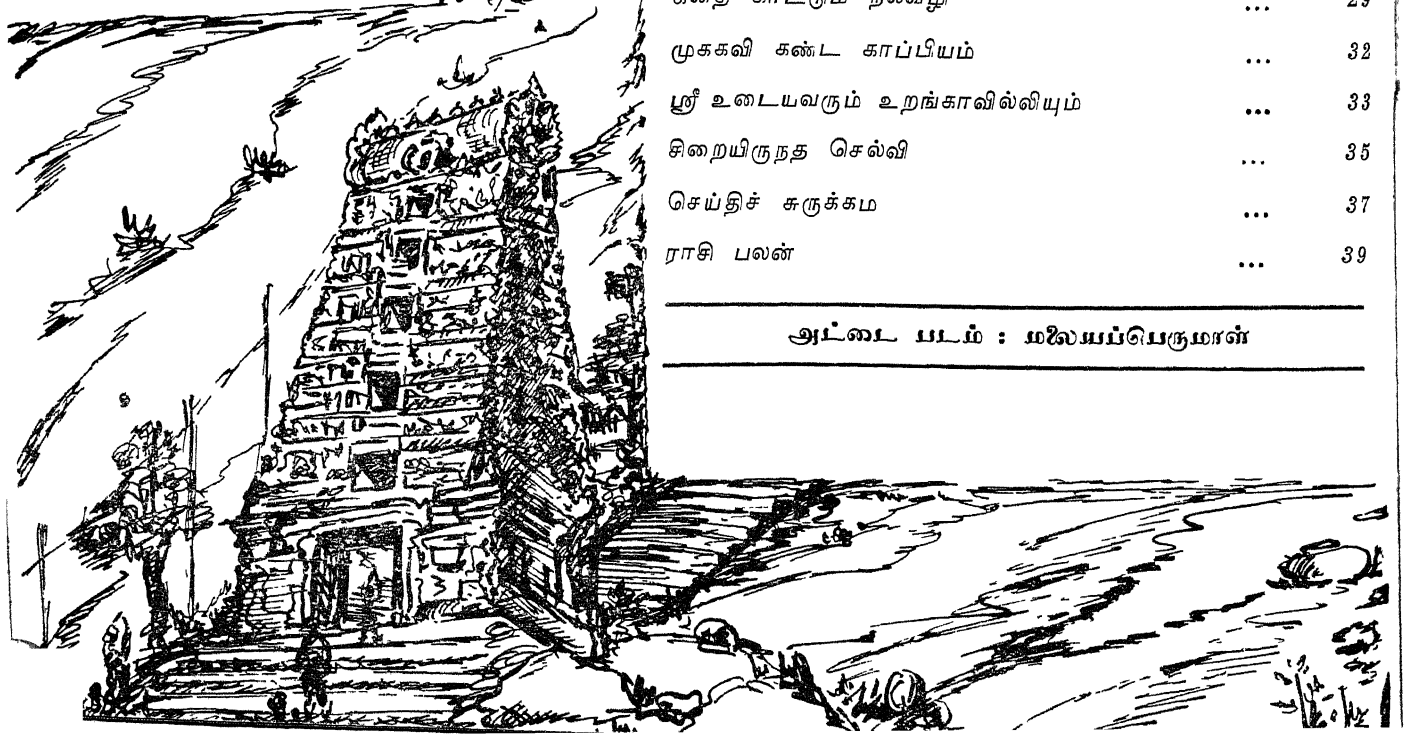 முககவி கண்ட காப்பியம் ... 32
ஸ்ரீ உடையவரும் உறங்காவில்லியும் ... 33
சிறையிருநத செல்வி ... 35
செய்திச் சுருக்கம ... 37
ராசி பலன் ... 39
அட்டை படம் : மலையப்பெருமாள்